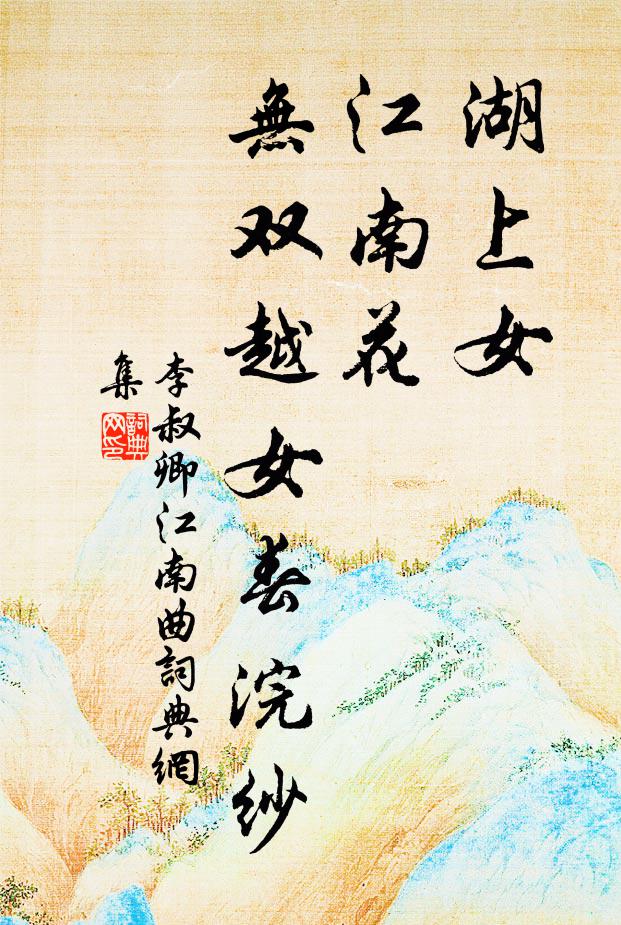 湖上女
江南花
無双越女春浣紗
李叔卿江南曲詞典網
集
詞典
网印